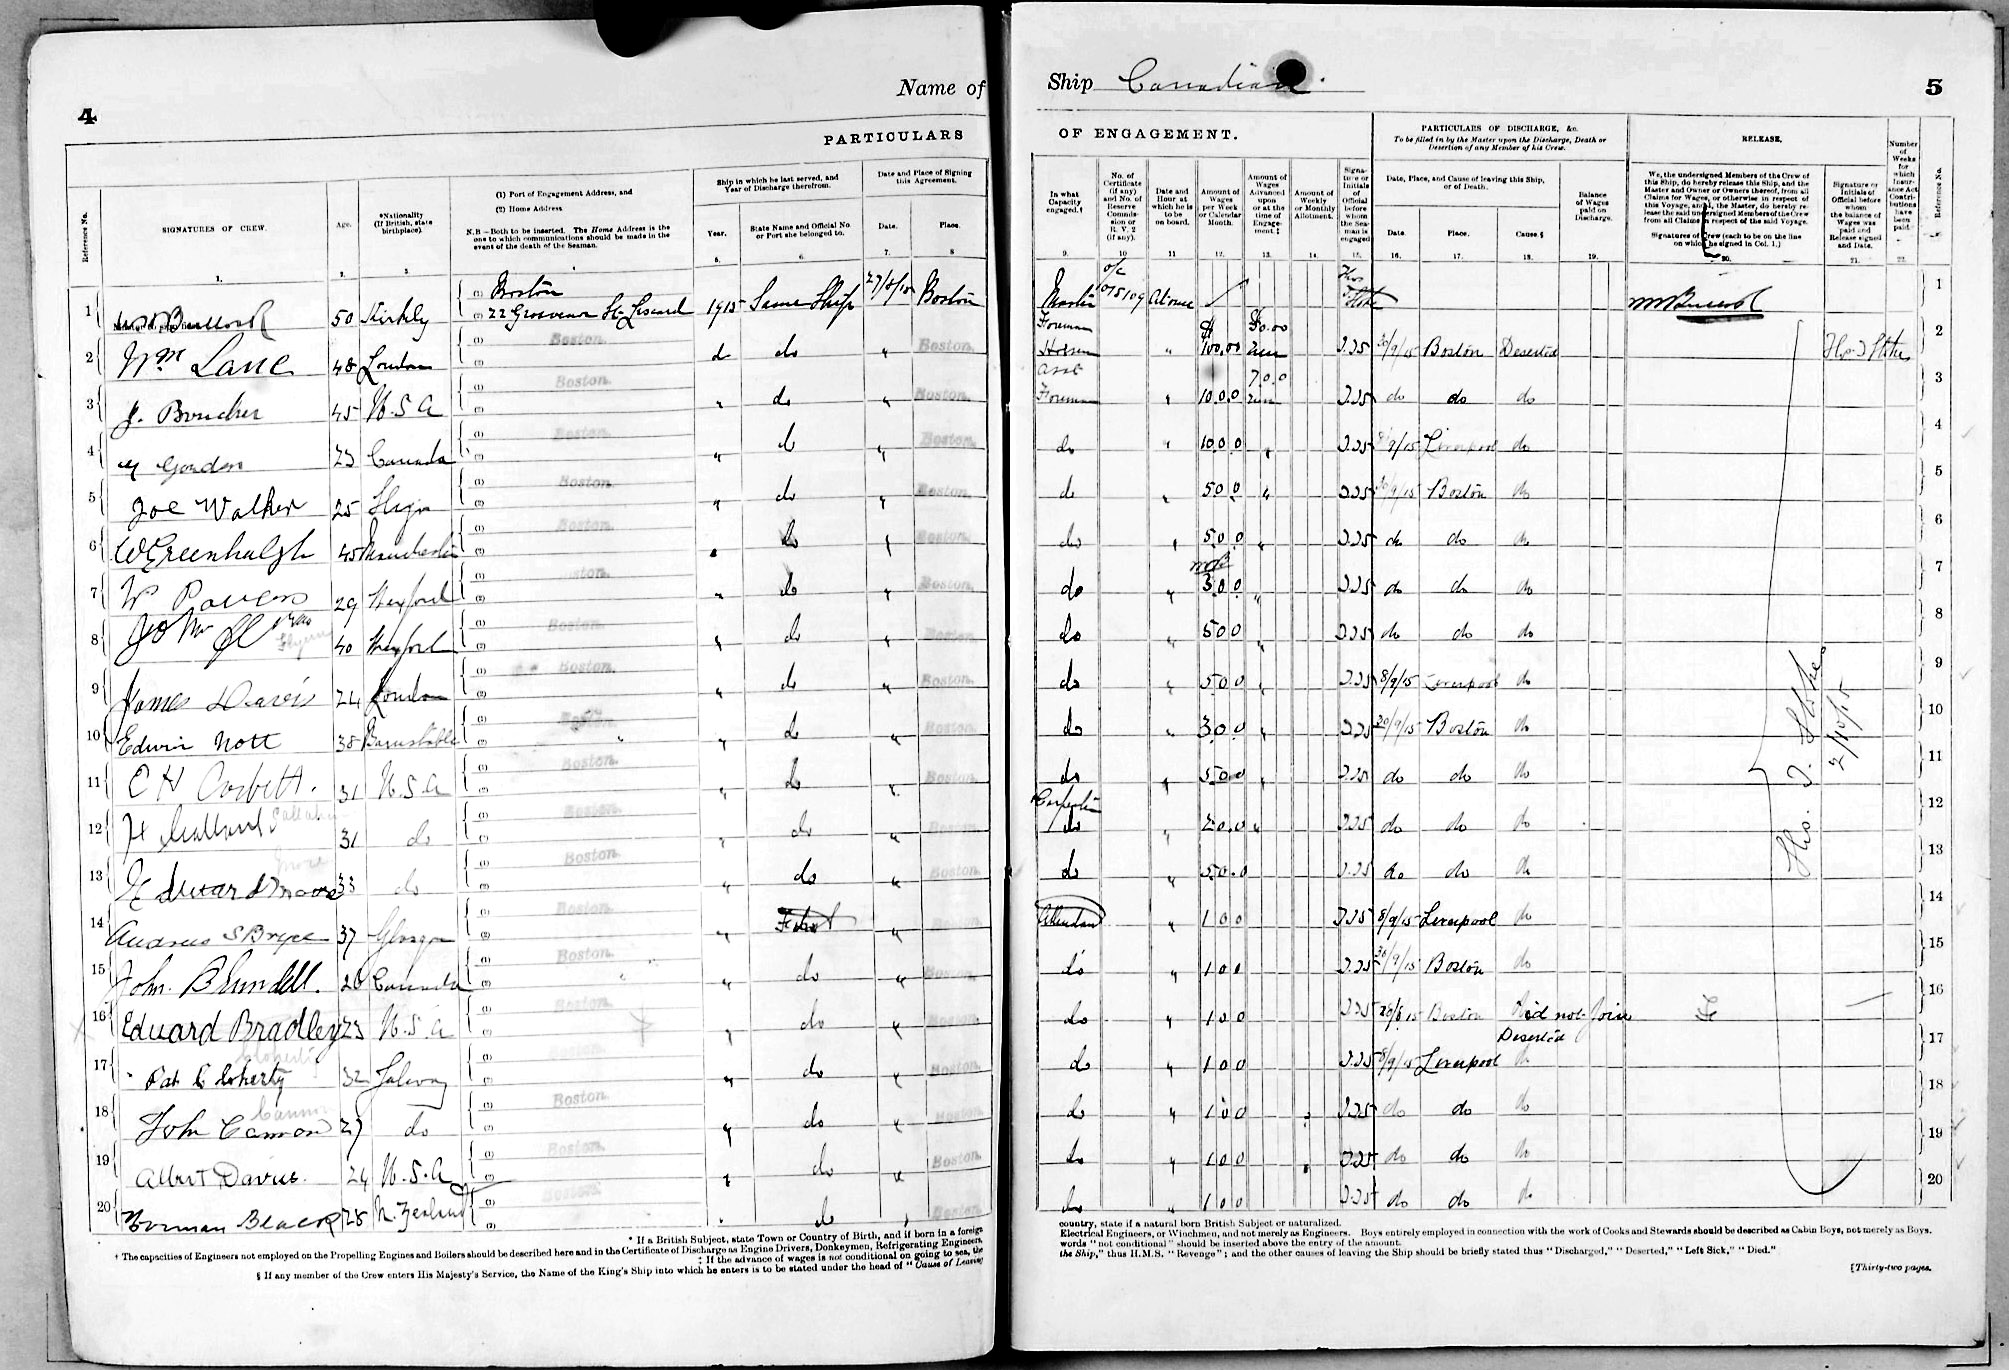 4
Name of
PARTICULARS
Reference No.
SIGNATURES OF CREW.
Age.
*Nationality (If British, state birthplace).
(1) Port of Engagement Address, and
(2) Home Address
N.B.—Both to be inserted. The Home Address is the one to which communications should be made in the event of the death of the Seaman.
Ship in which he last served, and Year of Discharge therefrom.
Year.
State Name and Official No. or Port she belonged to.
Date and Place of Signing this Agreement.
Date.
Place.
1 50 Kirkby Boston 22 Grosvenor St. Liscard 1915 Same Ship 27/8/15 Boston
2 Wm Lane 48 London Boston. do do " Boston.
3 J. Boucher 45 U.S.A Boston. " do " Boston.
4 Gordon 23 Canada Boston. " do " Boston.
5 Joe Walker 25 Boston. " do " Boston.
6 W Greenhalgh 45 Manchester Boston. " do " Boston.
7 W Powers 29 Wexford Boston. " do " Boston.
8 John 40 Wexford Boston. " do " Boston.
9 James Davis 24 London Boston. " do " Boston.
10 Edwin Nott 38 Barnstable Boston. " do " Boston.
11 C H Corbett. 31 U.S.A Boston. " do " Boston.
12 H 31 do Boston. " do " Boston.
13 Edward Moore 33 do Boston. " do " Boston.
14 Andrew 37 Glasgow Boston. " First " Boston.
15 John. Blundell. 26 Canada Boston. " do " Boston.
16 Eduard Bradley 23 U.S.A Boston. " do " Boston.
17 Pat Cloherty 32 Galway Boston. " do " Boston.
18 John Cannon 27 do Boston. " do " Boston.
19 Albert Davies. 24 U.S.A Boston. " do " Boston.
20 Norman Black 28 N. Zealand Boston. " do " Boston.
* If a British Subject, state Town or Country of Birth, and if born in a foreign
† The capacities of Engineers not employed on the Propelling Engines and Boilers should be described here and in the Certificate of Discharge as Engine Drivers, Donkeymen, Refrigerating Engineers,
‡ If the advance of wages is not conditional on going to sea, the
§ If any member of the Crew enters His Majesty's Service, the Name of the King's Ship into which he enters is to be stated under the head of "Cause of Leaving
Ship Canadian.
5
OF ENGAGEMENT.
PARTICULARS OF DISCHARGE, &c.
To be filled in by the Master upon the Discharge, Death or Desertion of any Member of his Crew.
RELEASE.
In what Capacity engaged.†
No. of Certificate (if any) and No. of Reserve Commission or R. V. 2 (if any).
Date and Hour at which he is to be on board.
Amount of Wages per Week or Calendar Month.
Amount of Wages Advanced upon or at the time of Engagement.‡
Amount of Weekly or Monthly Allotment.
Signature or Initials of Official before whom the Seaman is engaged
Date, Place, and Cause of leaving this Ship, or of Death.
Date.
Place.
Cause.§
Balance of Wages paid on Discharge.
We, the undersigned Members of the Crew of this Ship, do hereby release this Ship, and the Master and Owner or Owners thereof, from all Claims for Wages, or otherwise in respect of this Voyage, and I, the Master, do hereby release the said undersigned Members of the Crew from all Claims in respect of the said Voyage.
Signatures of Crew (each to be on the line on which he signed in Col. 1.)
Signature or Initials of Official before whom the balance of Wages was paid and Release signed and Date.
Number of Weeks for which Insurance Act Contributions have been paid
Reference No.
Master 015109 At once 1
Foreman Horsem " $ 100.00 50.00 30/9/15 Boston Deserted 2
Asst Foreman " 10.00 7.00 do do do 3
do " 10.00 " 8/9/15 Liverpool do 4
do " 5.00 " 30/9/15 Boston do 5
do " 5.00 " do do do 6
do " 3.00 " do do do 7
do " 5.00 " do do do 8
do " 5.00 " 8/9/15 Liverpool do 9
do " 3.00 " 30/9/15 Boston do 10
do " 5.00 " do do do 11
do " 20.0 " do do do 12
do " 50.0 do do do 13
Attendant " 1 00 8/9/15 Liverpool do 14
do " 1 00 30/9/15 Boston do 15
do " 1 00 Boston Did not Join 16
do " 1 00 8/9/15 Liverpool Deserted do 17
do " 1 00 do do do 18
do " 1 00 do do do 19
do " 1 00 do do do 20
Tho. J. Stokes
2/10/15
country, state if a natural born British Subject or naturalized.
Electrical Engineers, or Winchmen, and not merely as Engineers. Boys entirely employed in connection with the work of Cooks and Stewards should be described as Cabin Boys, not merely as Boys.
words "not conditional" should be inserted above the entry of the amount.
the Ship," thus H.M.S. "Revenge"; and the other causes of leaving the Ship should be briefly stated thus "Discharged," "Deserted," "Left Sick," "Died."
[Thirty-two pages.